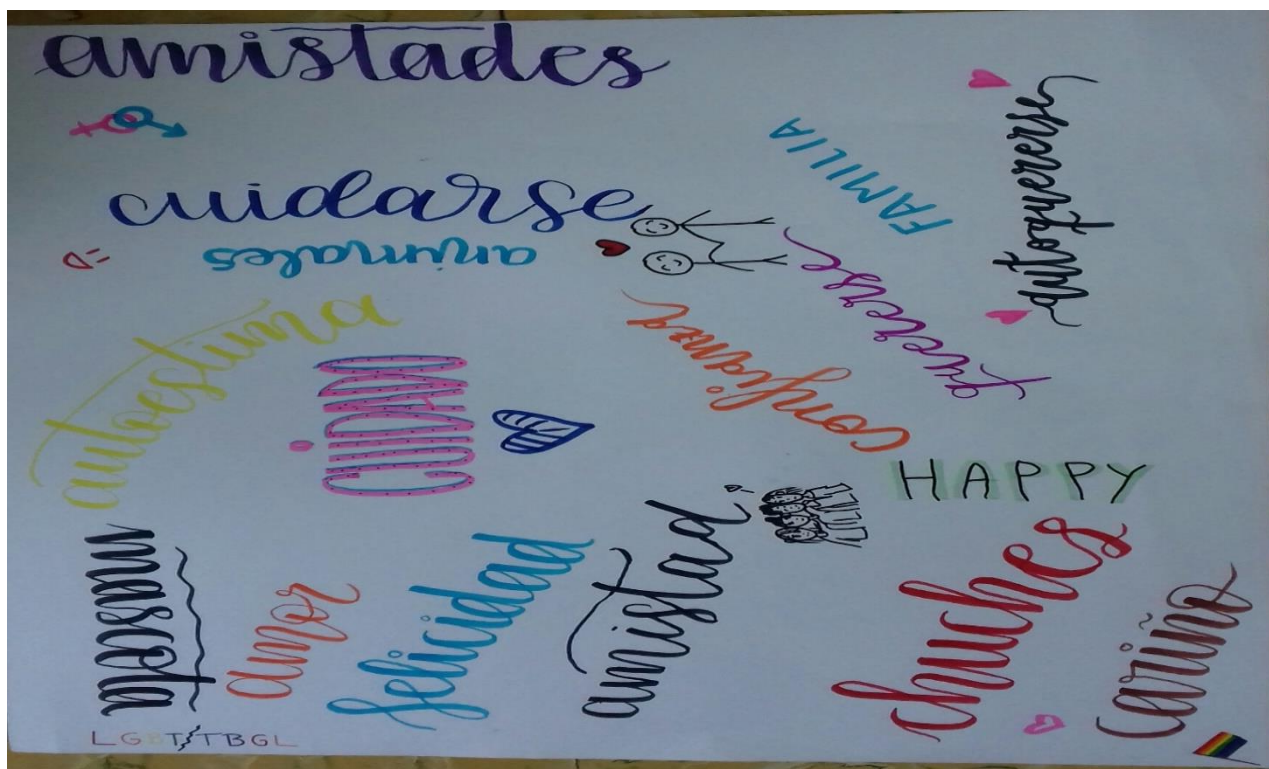 amistades
cuidarse
animales
FAMILIA
quererse
confianza
autoestima
cuidado
HAPPY
mascota
amor
felicidad
amistad
chuches
cariño
LGBT/TBGL